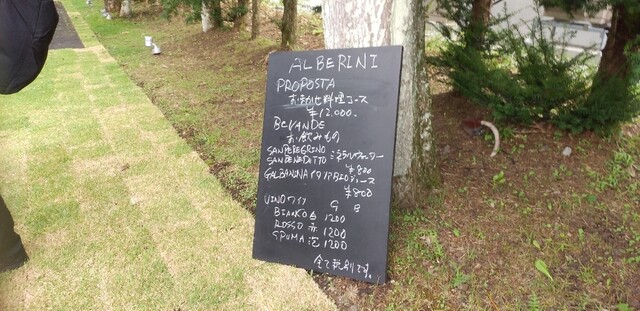 ALBERINI
PROPOSTA
お勧め料理コース
¥12,000.
BEVANDE
お飲みもの
SANPEREGRINO
SANBENEDETTO ミネラルウォーター
¥800
GALBANINA イタリアBIOジュース
¥800
VINO ワイン G B
BIANCO 白 1200
ROSSO 赤 1200
SPUMA 泡 1200
全て税別です。